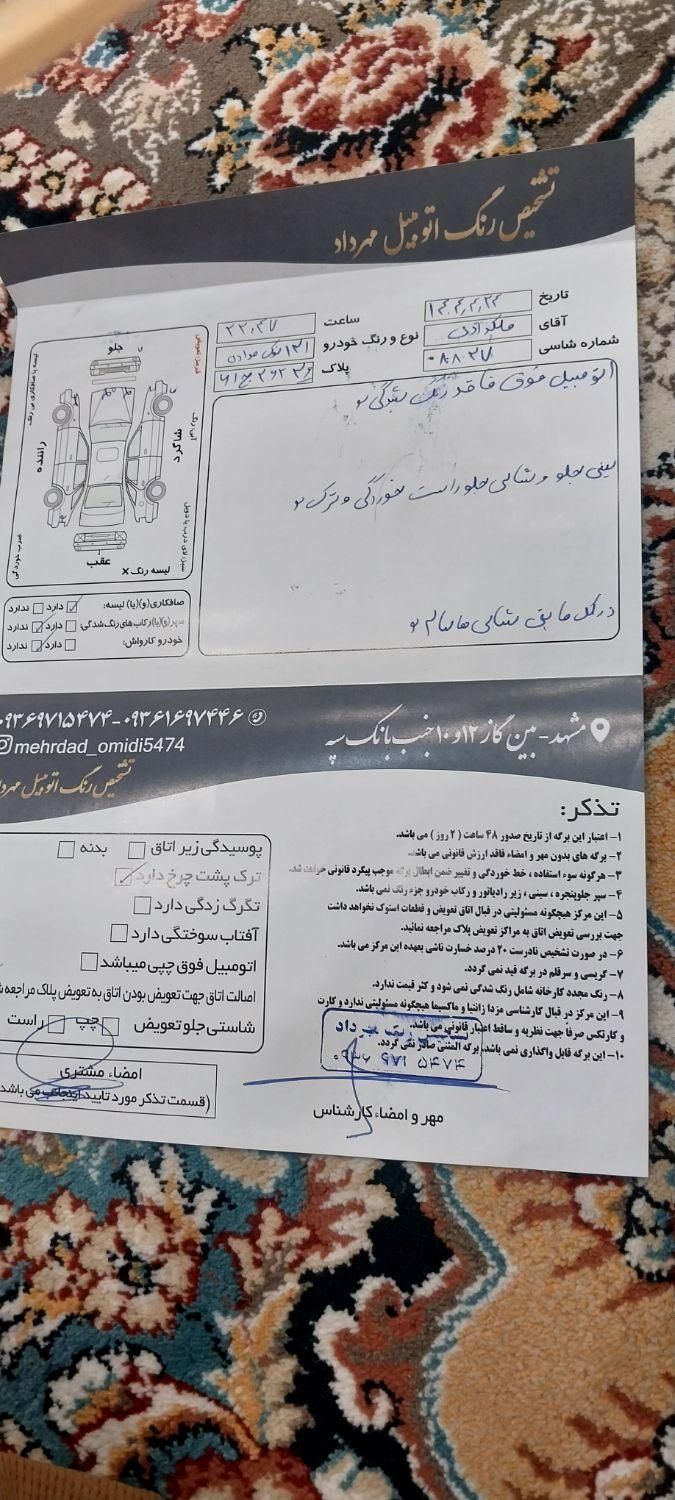 تشخیص رنگ اتومبیل مهرداد
تاریخ
ساعت ۲۲:۴۷
آقای
نوع و رنگ خودرو ۱۳۱
شماره شاسی ۰۸۸۰۳۷
پلاک
اتومبیل فوق فاقد رنگ شدگی
سینی جلو و شاسی جلو راست خوردگی و ترک
در کل مابقی شاسی ها سالم
جلو
راننده
شاگرد
عقب
لیسه رنگ X
صافکاری(و)(یا) لیسه: دارد ندارد
سپر(و)(یا)رکاب‌های رنگ شدگی: دارد ندارد
خودرو کارواش: دارد ندارد
مشهد- بین گاز ۱۲و۱۰ جنب بانک سپه
۰۹۳۶۹۷۱۵۴۷۴-۰۹۳۶۱۶۹۷۴۴۶
mehrdad_omidi5474
تشخیص رنگ اتومبیل مهرداد
تذکر:
۱- اعتبار این برگه از تاریخ صدور ۴۸ ساعت ( ۲ روز ) می باشد.
۲- برگه های بدون مهر و امضاء فاقد ارزش قانونی می باشد.
۳- هرگونه سوء استفاده ، خط خوردگی و تغییر ضمن ابطال برگه موجب پیگرد قانونی خواهد شد.
۴- سپر جلوپنجره ، سینی ، زیر رادیاتور و رکاب خودرو جزء رنگ نمی باشد.
۵- این مرکز هیچگونه مسئولیتی در قبال اتاق تعویض و قطعات استوک نخواهد داشت
جهت بررسی تعویض اتاق به مراکز تعویض پلاک مراجعه نمائید.
۶- در صورت تشخیص نادرست ۲۰ درصد خسارت ناشی بعهده این مرکز می باشد.
۷- گریسی و سرقلم در برگه قید نمی گردد.
۸- رنگ مجدد کارخانه شامل رنگ شدگی نمی شود و کثر قیمت ندارد.
۹- این مرکز در قبال کارشناسی مزدا زانتیا و ماکسیما هیچگونه مسئولیتی ندارد و کارت
و کارتکس صرفاً جهت نظریه و ساقط اعتبار قانونی می باشد.
۱۰- این برگه قابل واگذاری نمی باشد. برگه المثنی صادر نمی گردد.
۰۹۳۶ ۹۷۱ ۵۴۷۴
مهر و امضاء کارشناس
پوسیدگی زیر اتاق بدنه
ترک پشت چرخ دارد
تگرگ زدگی دارد
آفتاب سوختگی دارد
اتومبیل فوق چپی میباشد
اصالت اتاق جهت تعویض بودن اتاق به تعویض پلاک مراجعه
شاستی جلو تعویض چپ راست
امضاء مشتری
(قسمت تذکر مورد تایید اینجانب می باشد